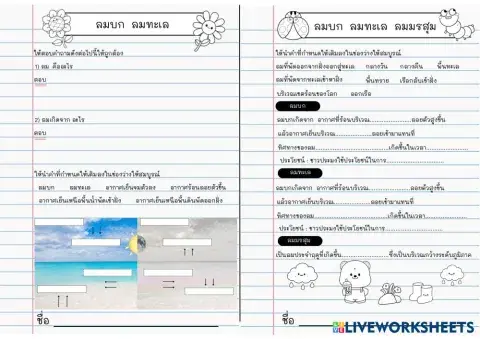 ลมบก ลมทะเล
ให้ตอบคำถามดังต่อไปนี้ให้ถูกต้อง
1) ลม คืออะไร
ตอบ
2) ลมเกิดจาก อะไร
ตอบ
ให้นำคำที่กำหนดให้เติมลงในช่องว่างให้สมบูรณ์
ลมบก ลมทะเล อากาศเย็นจมตัวลง อากาศร้อนลอยตัวขึ้น
อากาศเย็นเหนือพื้นน้ำพัดเข้าฝั่ง อากาศเย็นเหนือพื้นดินพัดออกฝั่ง
ชื่อ
ลมบก ลมทะเล ลมมรสุม
ให้นำคำที่กำหนดให้เติมลงในช่องว่างให้สมบูรณ์
ลมที่พัดออกจากฝั่งออกสู่ทะเล กลางวัน กลางคืน พื้นทะเล
ลมที่พัดจากทะเลเข้าหาฝั่ง พื้นทราย เรือกลับเข้าฝั่ง
บริเวณเขตร้อนของโลก ออกเรือ
ลมบก
ลมบกเกิดจาก อากาศที่ร้อนบริเวณ........................ลอยตัวสูงขึ้น
แล้วอากาศเย็นบริเวณ........................ลอยเข้ามาแทนที่
ทิศทางของลม........................เกิดขึ้นในเวลา........................
ประโยชน์ : ชาวประมงใช้ประโยชน์ในการ........................
ลมทะเล
ลมบกเกิดจาก อากาศที่ร้อนบริเวณ........................ลอยตัวสูงขึ้น
แล้วอากาศเย็นบริเวณ........................ลอยเข้ามาแทนที่
ทิศทางของลม........................เกิดขึ้นในเวลา........................
ประโยชน์ : ชาวประมงใช้ประโยชน์ในการ........................
ลมมรสุม
เป็นลมประจำฤดูที่เกิดขึ้น........................ซึ่งเป็นบริเวณกว้างระดับภูมิภาค
ชื่อ
LIVEWORKSHEETS